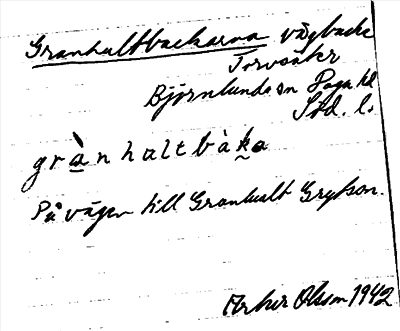 Granhultbackarna vägbacke
Torvsåkr
Björnlunda sn Daga hd
Söd. l.
grànhaltbàka
På vägen till Granhult Grytson.
Arthur Olsson 1942